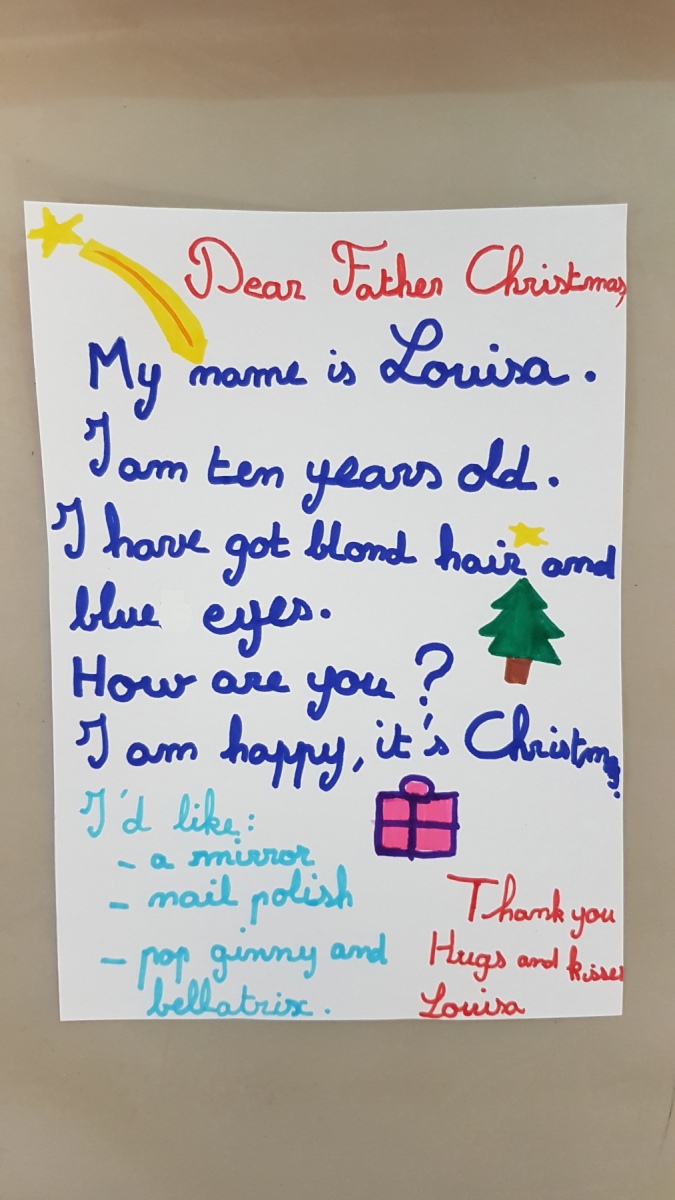 Dear Father Christmas,
My name is Louisa.
I am ten years old.
I have got blond hair and
blue eyes.
How are you?
I am happy, it's Christmas.
I'd like:
- a mirror
- nail polish
- pop ginny and
bellatrix.
Thank you
Hugs and kisses
Louisa